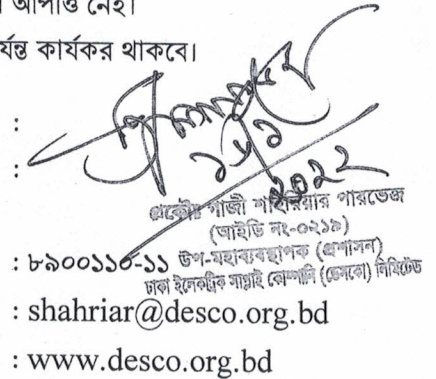 আপত্তি নেই।
র্যন্ত কার্যকর থাকবে।
:
:
২০২২
প্রকৌঃ গাজী শাহরিয়ার পারভেজ
(আইডি নং-০২১৯)
উপ-মহাব্যবস্থাপক (প্রশাসন)
: ৮৯০০১১০-১১
ঢাকা ইলেকট্রিক সাপ্লাই কোম্পানি (ডেসকো) লিমিটেড
: shahriar@desco.org.bd
: www.desco.org.bd